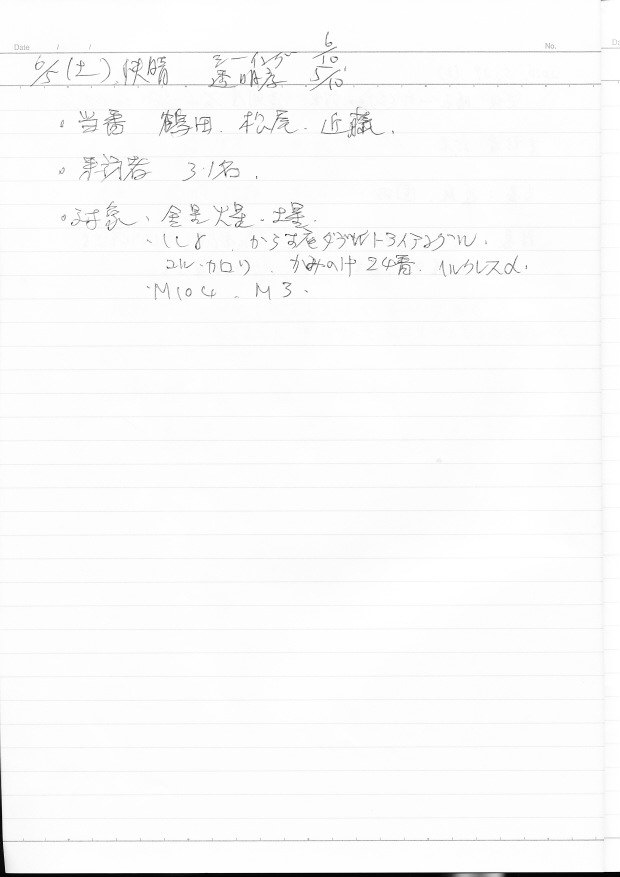 Date / /
No.
6/5(土) 快晴 シーイング 6/10
透明度 5/10
・当番 鶴田. 松尾. 近藤.
・来訪者 31名.
・対象、金星 火星. 土星.
・ししγ. からす座ダブルトライアングル.
コル・カロリ. かみのけ 24番. ヘルクレスα.
・M104. M3.